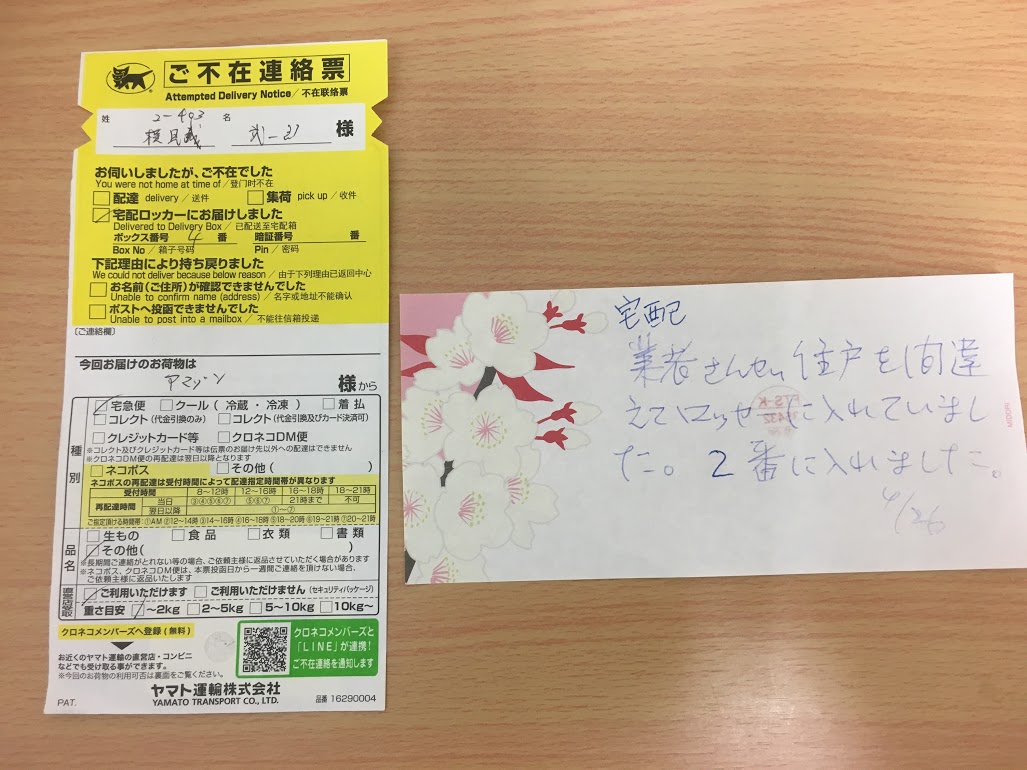 ご不在連絡票
Attempted Delivery Notice/不在联络票
姓 2-403 名
様
お伺いしましたが、ご不在でした
You were not home at time of / 登门时不在
配達 delivery / 送件 集荷 pick up / 收件
宅配ロッカーにお届けしました
Delivered to Delivery Box / 已配送至宅配箱
ボックス番号 4 番 暗証番号 番
Box No / 箱子号码 Pin / 密码
下記理由により持ち戻りました
We could not deliver because below reason / 由于下列理由已返回中心
お名前(ご住所)が確認できませんでした
Unable to confirm name (address) / 名字或地址不能确认
ポストへ投函できませんでした
Unable to post into a mailbox / 不能往信箱投递
(ご連絡欄)
今回お届けのお荷物は
アマゾン 様から
種別
宅急便 クール(冷蔵・冷凍) 着払
コレクト(代金引換のみ) コレクト(代金引換及びカード決済可)
クレジットカード等 クロネコDM便
※コレクト及びクレジットカード等は伝票のお届け先以外への配達はできません
※クロネコDM便の再配達は翌日以降となります
ネコポス その他( )
ネコポスの再配達は受付時間によって配達指定時間帯が異なります
受付時間 8~12時 12~16時 16~18時 18~21時
再配達時間 当日 ③④⑤⑥⑦ ⑤⑥⑦ 21時まで 不可
翌日以降 ①~⑦
ご指定頂ける時間帯:①AM ②12~14時 ③14~16時 ④16~18時 ⑤18~20時 ⑥19~21時 ⑦20~21時
品名
生もの 食品 衣類 書類
その他( )
※長期間ご連絡がとれない等の場合、ご依頼主様に返品させていただく場合があります
※ネコポス、クロネコDM便は、本票投函日から一週間ご連絡が頂けない場合、
ご依頼主様に返品いたします
直営店受取
ご利用いただけます ご利用いただけません(セキュリティパッケージ)
重さ目安 ~2kg 2~5kg 5~10kg 10kg~
クロネコメンバーズへ登録(無料)
お近くのヤマト運輸の直営店・コンビニ
などでも受け取る事ができます。
※今回のお荷物の利用可否は裏面をご覧ください。
クロネコメンバーズと
「LINE」が連携!
ご不在連絡を通知します
PAT.
ヤマト運輸株式会社
YAMATO TRANSPORT CO., LTD.
品番 16290004
宅配
業者さんが住戸を間違
えてロッカーに入れていまし
た。2番に入れました。
4/26